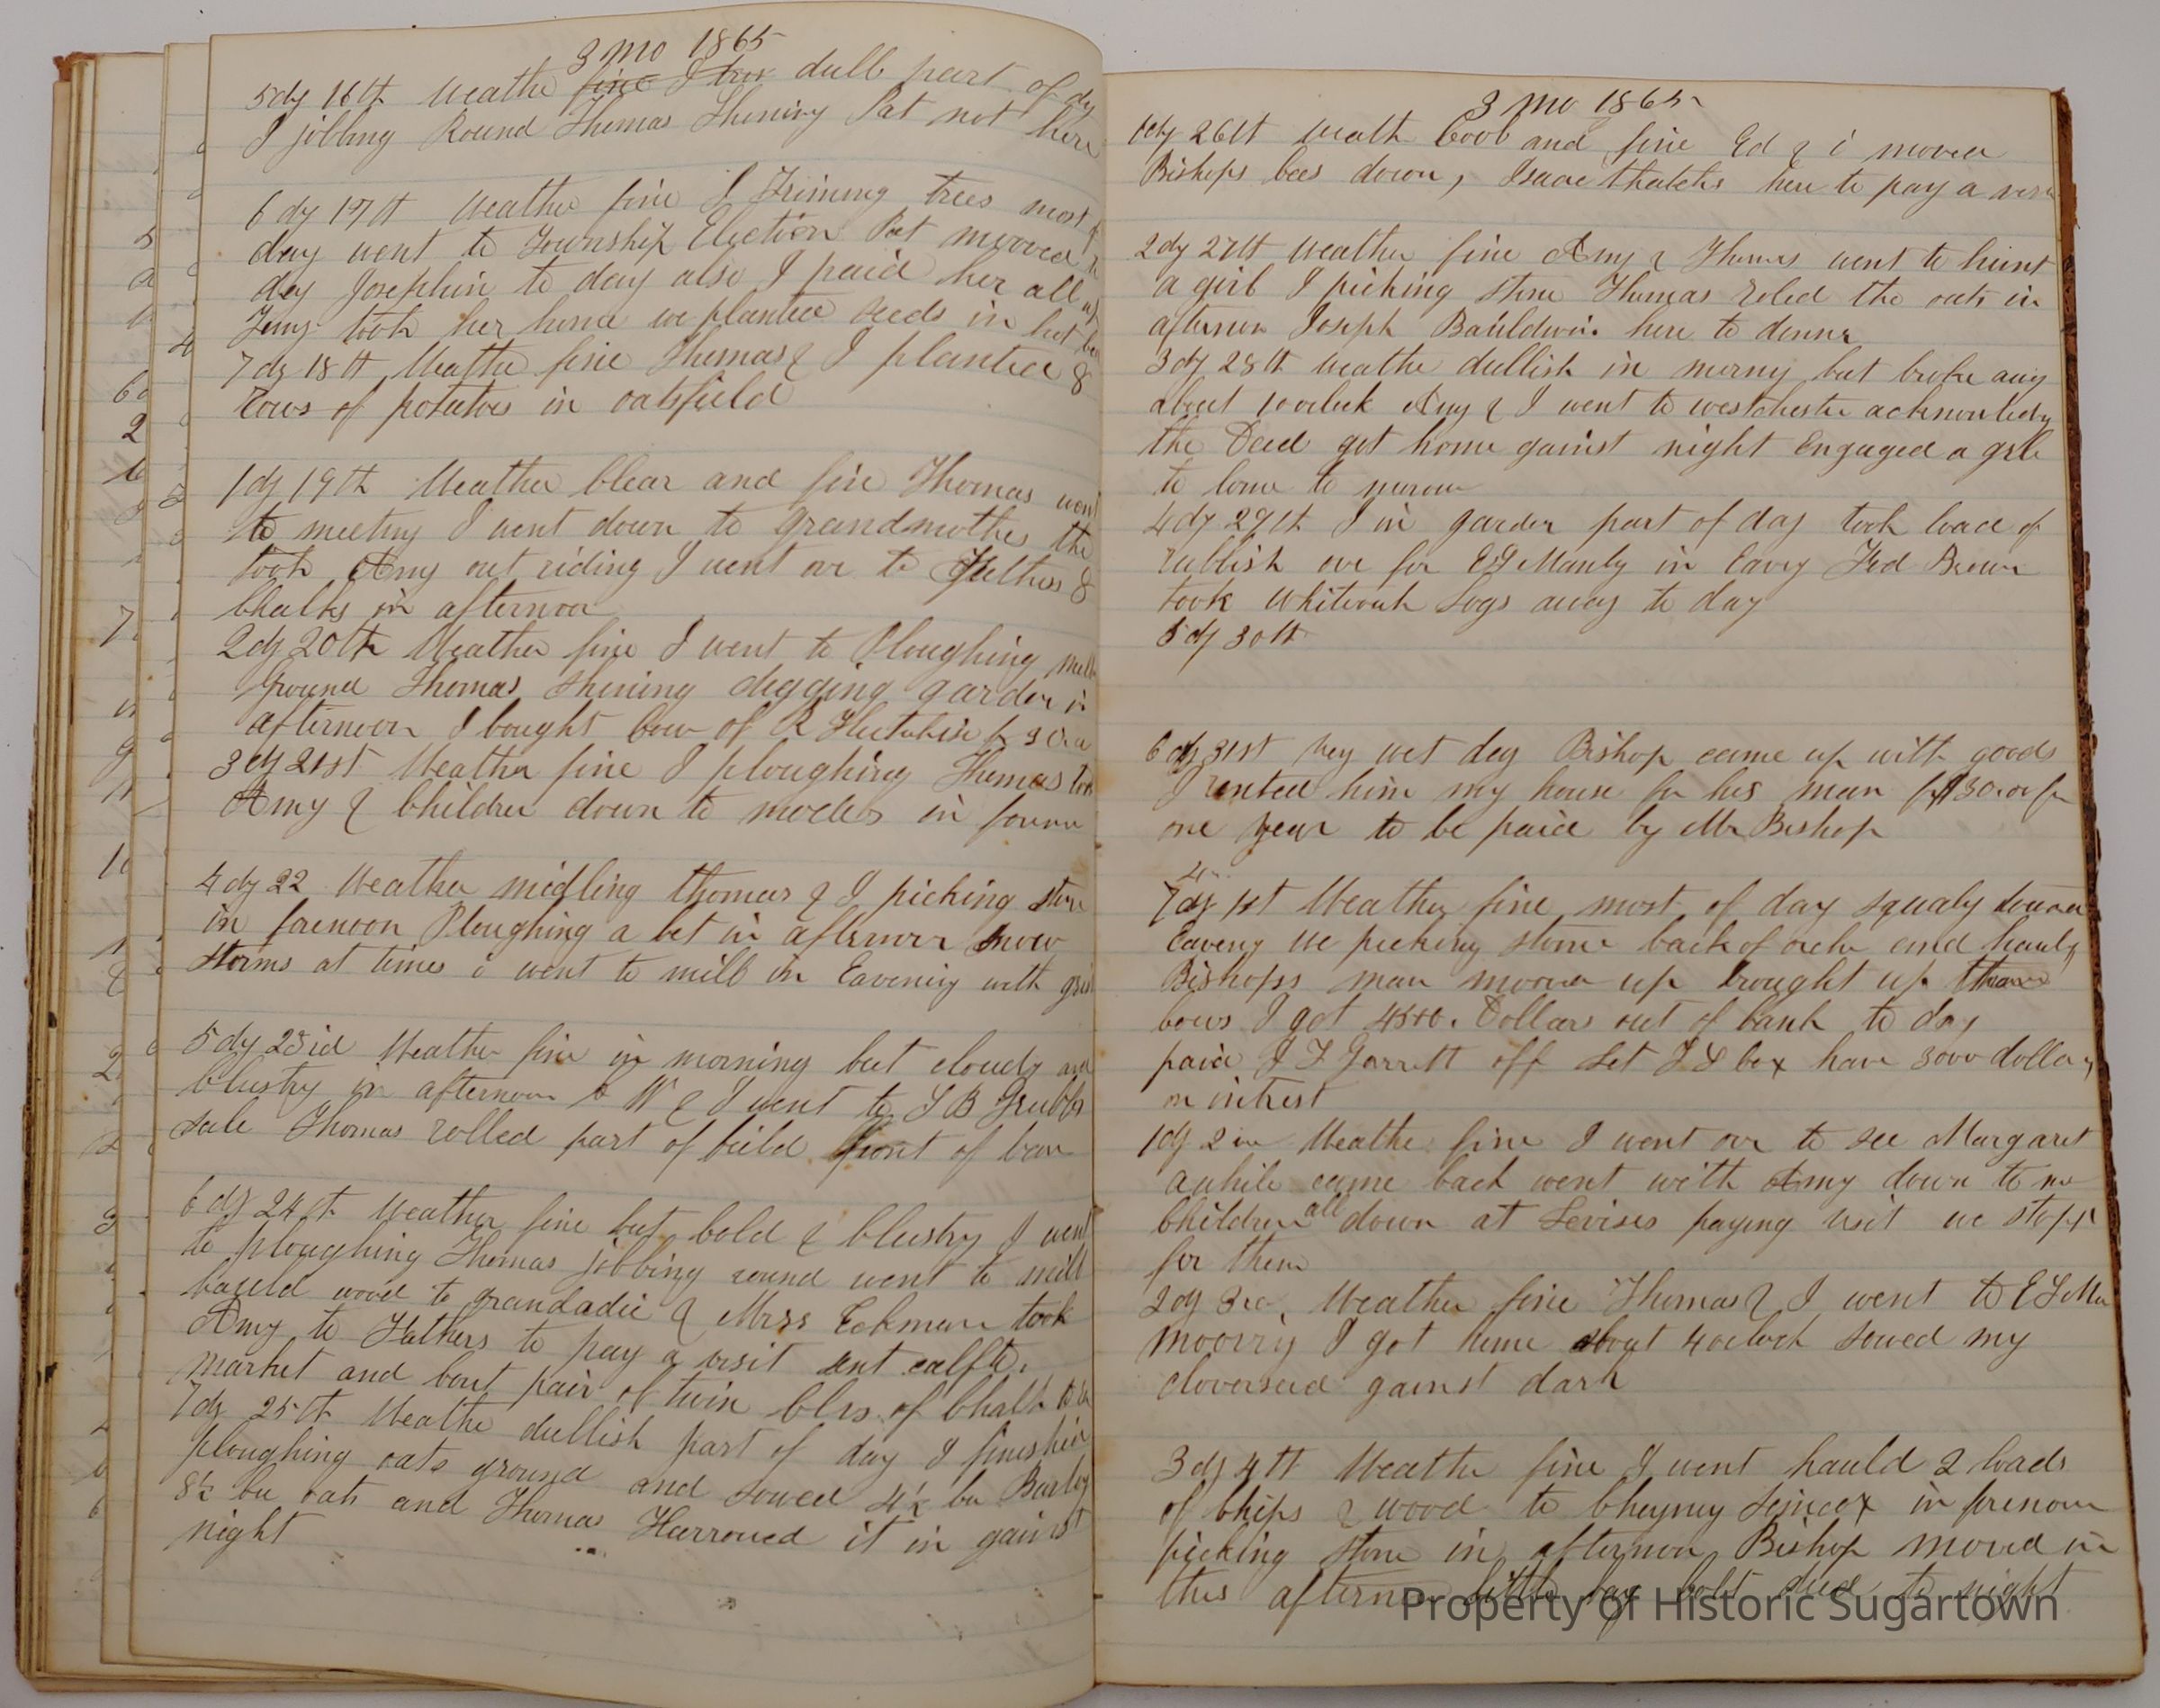 3 mo 1865
5dy 16th Weathe fine I dull part of dy
I jobbing Round Thomas Thening Pat not here
6 dy 17th Weathe fine I Triming trees most
day went to Township Election Pat mooved
day Josephin to day also I paid her all
took her home we planted seeds in hot
7 dy 18th Weathe fine Thomas & I planted 8
Rows of potatoes in oatsfield
1 dy 19th Weather Clear and fine Thomas went
to meeting I went down to Grandmothes the
took Amy out riding I went ov to &
Chalks in afternoon
2dy 20th Weathe fine I went to Ploughing
Ground Thomas Thening digging garden in
afternoon I bought Cow of R
3 dy 21st Weather fine I ploughing Thomas
Amy & Children down to in
4 dy 22 Weather midling thomas & I picking stone
in forenoon Ploughing a bit in afternoon Snow
storms at times i went to mill in Eavening with
5 dy 23id Weathe fine in morning but cloudy and
blustry in afternoon W & I went to S B Grubbs
sale Thomas rolled part of field front of barn
6 dy 24th Weather fine but Cold & blustry I went
to ploughing Thomas jobbing round went to mill
hauld wood to grandadie & Mrss Eckman took
Amy to Fathers to pay a visit sent calf to
market and bout pair of twin Clvs of Chalk
7 dy 25th Weathe dullish part of day I finished
ploughing oats ground and sowed 4½ bu Barley
8½ bu oats and Thomas Harrowed it in gainst
night
3 mo 1865
1dy 26th Weath Cool and fine Ed & i moved
Bishops bees down, Isaac thatchs here to pay a
2dy 27th Weather fine Amy & Thomas went to hunt
a girl I picking stone Thomas Roled the oats in
afternoon Joseph Bauldwin here to dinner
3 dy 28th Weathe dullish in morny but broke away
about 10 oclock Amy & I went to westchester acknowledg
the Deed got home gainst night Engaged a girl
to Come to morow
4 dy 29th I in garden part of day took load of
rubbish ove for E S Manly in Eavng Fred Brown
took logs away to day
5 dy 30th
6 dy 31st Very wet day Bishop came up with goods
I rented him my house for his man for
one year to be paid by Mr Bishop
4
7 dy 1st Weather fine most of day squaly
Eaveng We picking stone back of and hauly
Bishops man moovd up brought up
Cows I got Dollars out of bank to day
paid Garrett off let box have 3000 dollars
on intrest
1 dy 2 Weathe fine I went ov to see Margaret
awhile came back went with Amy down to
Children all down at Levises paying visit we stopt
for them
2 dy 3rd. Weather fine Thomas & I went to
moovig I got home about 4 oclock sowed my
cloverseed gainst dark
3 dy 4th Weathe fine I went hauld 2 loads
of Chips & wood to Cheyney in forenoon
picking stone in afternoon Bishop moved in
this afternoon little bay colt died to night
Property of Historic Sugartown